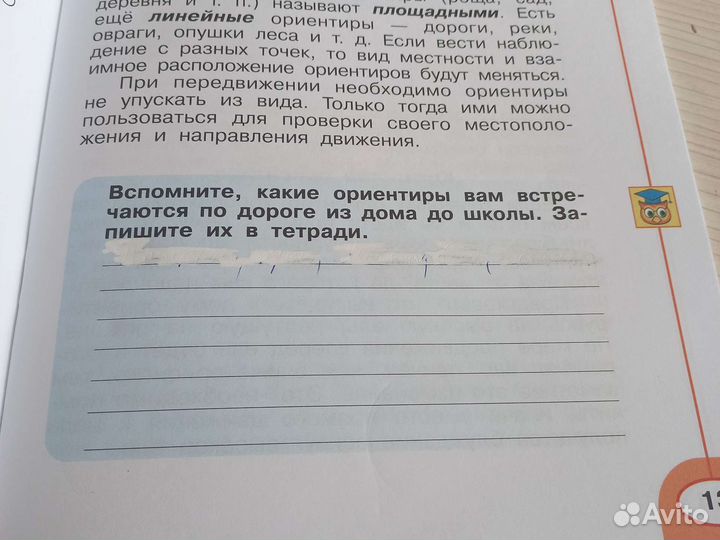 деревня и т. п.) называют площадными. Есть
ещё линейные ориентиры — дороги, реки,
овраги, опушки леса и т. д. Если вести наблю-
дение с разных точек, то вид местности и вза-
имное расположение ориентиров будут меняться.
При передвижении необходимо ориентиры
не упускать из вида. Только тогда ими можно
пользоваться для проверки своего местополо-
жения и направления движения.
Вспомните, какие ориентиры вам встре-
чаются по дороге из дома до школы. За-
пишите их в тетради.
Avito